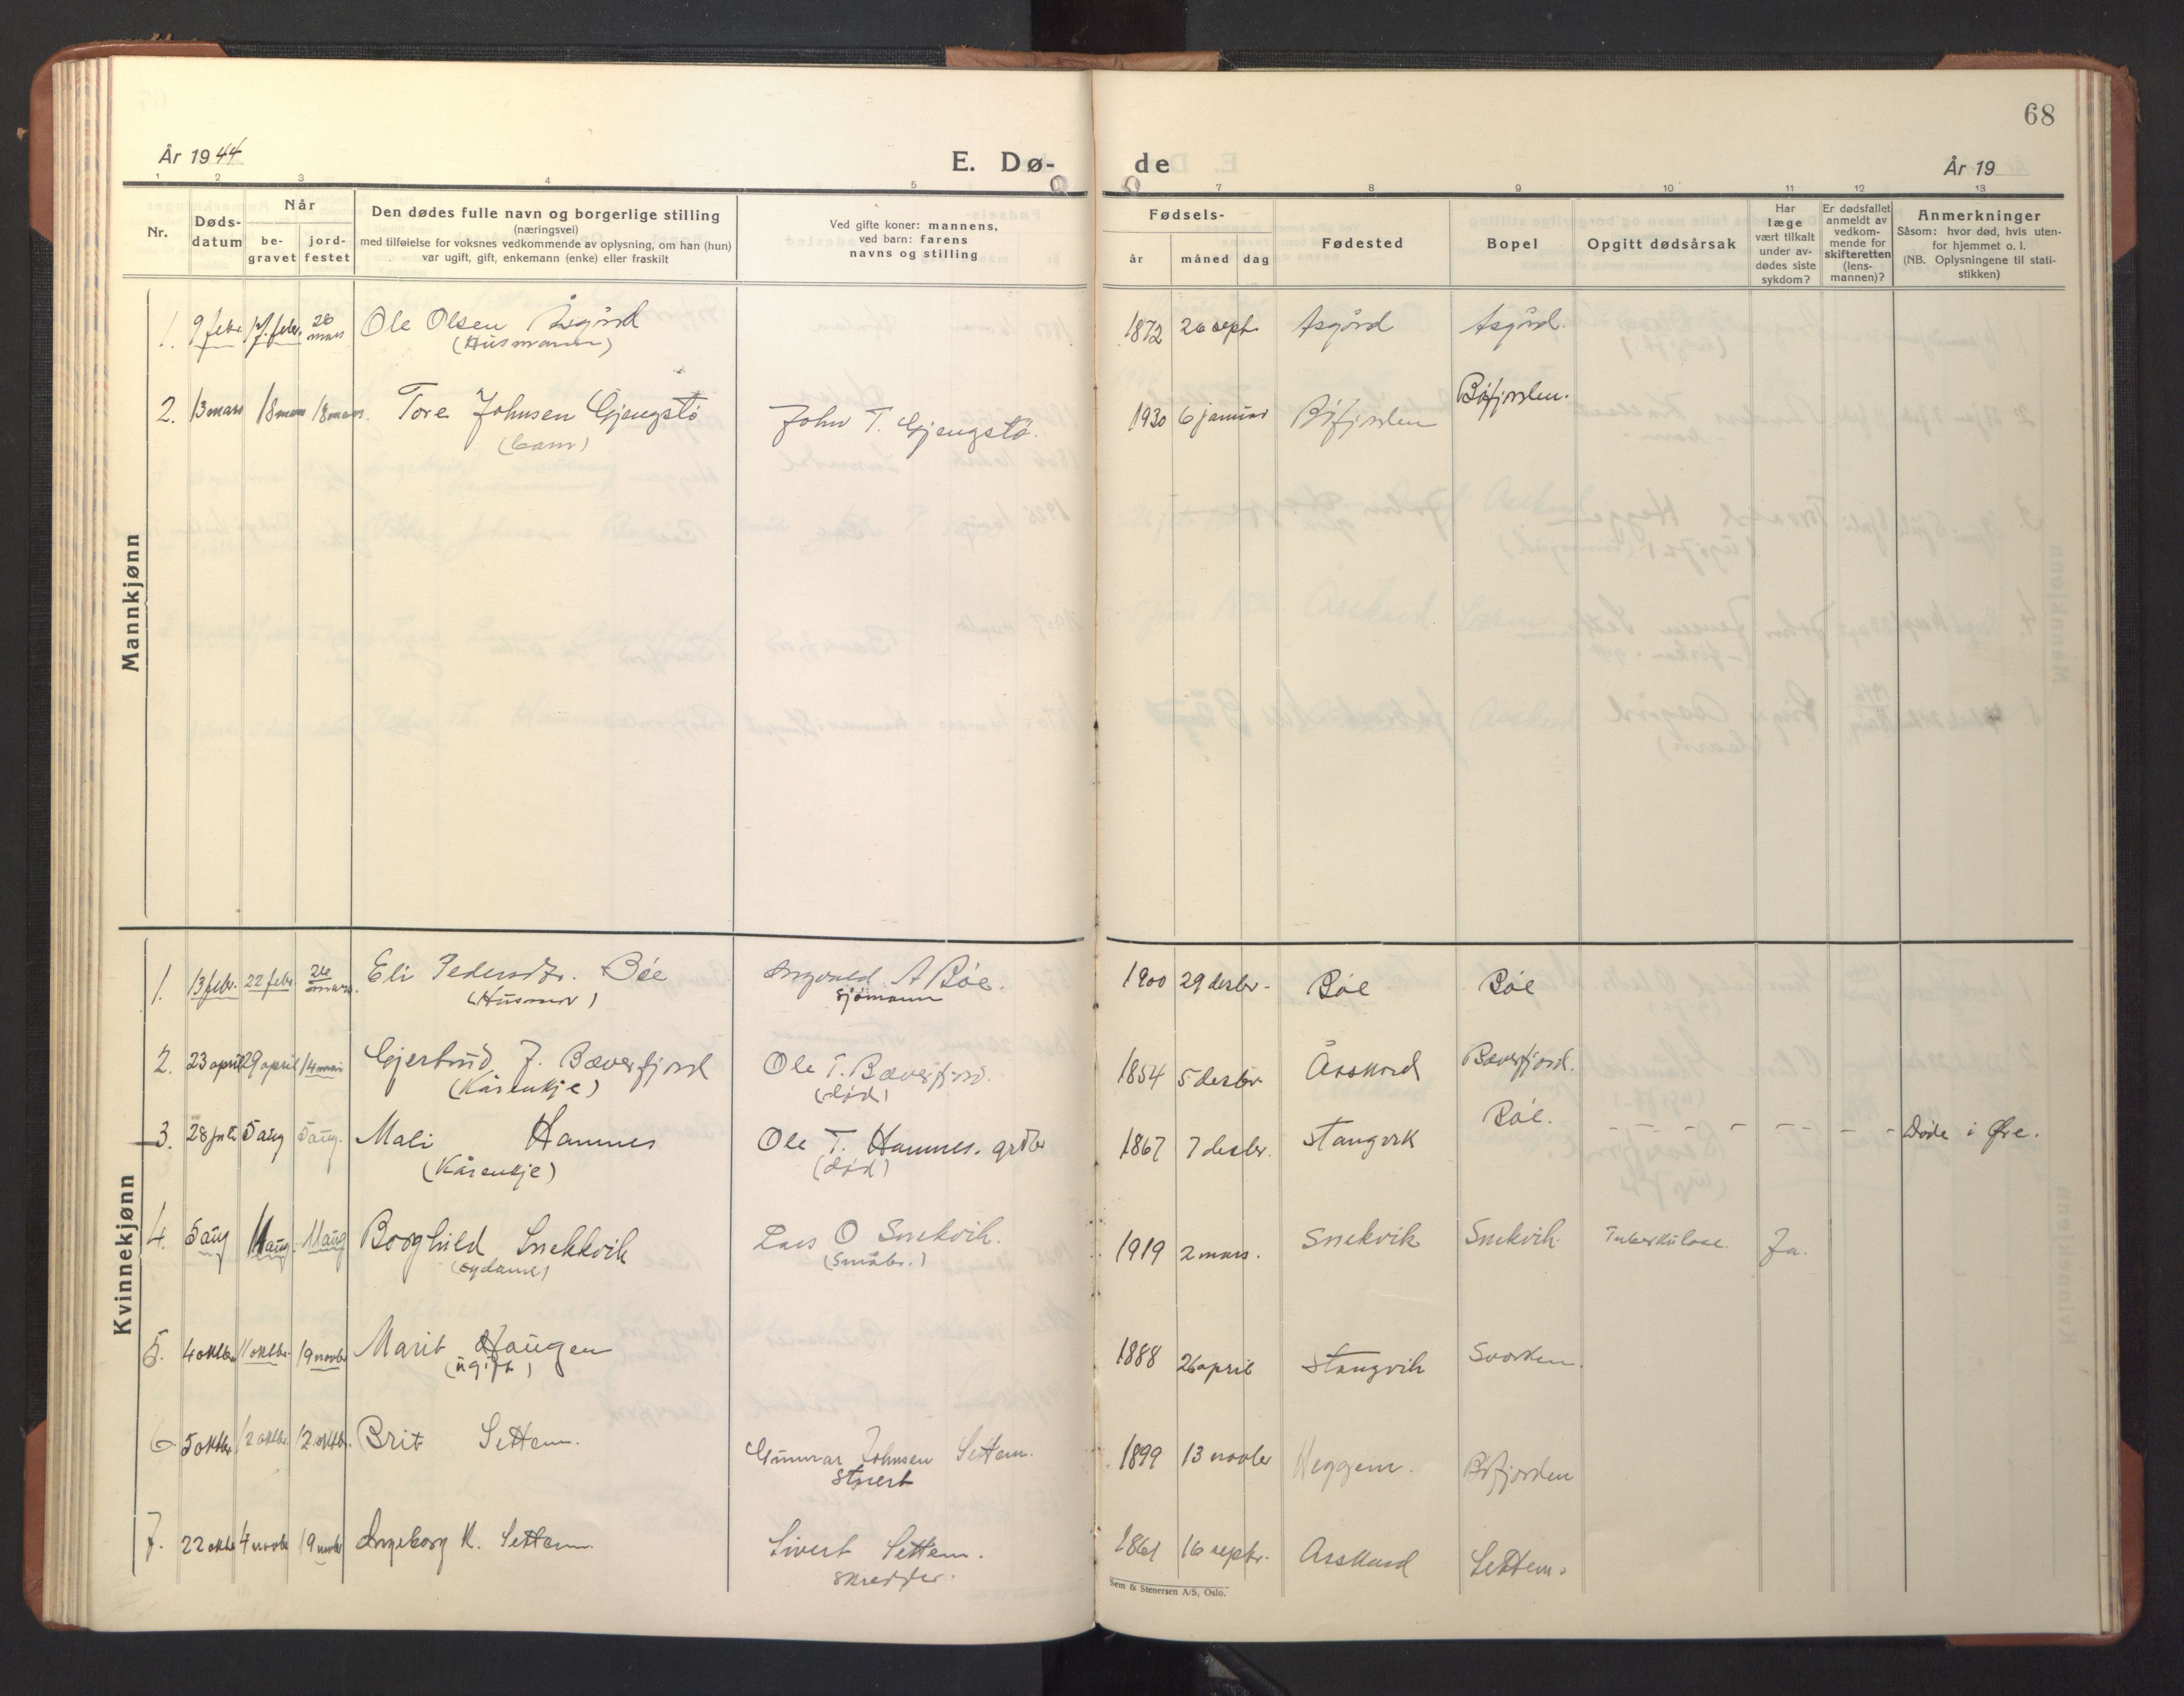 68
År 1944
E. Dø-
de
År 19
1 2 3 4 5
7 8 9 10 11 12 13
Nr.
Døds-
datum
Når
be-
gravet
jord-
festet
Den dødes fulle navn og borgerlige stilling
(næringsvei)
med tilføielse for voksnes vedkommende av oplysning, om han (hun)
var ugift, gift, enkemann (enke) eller fraskilt
Ved gifte koner: mannens,
ved barn: farens
navns og stilling
Fødsels-
år måned dag
Fødested
Bopel
Opgitt dødsårsak
Har
læge
vært tilkalt
under av-
dødes siste
sykdom?
Er dødsfallet
anmeldt av
vedkom-
mende for
skifteretten
(lens-
mannen)?
Anmerkninger
Såsom: hvor død, hvis uten-
for hjemmet o. l.
(NB. Oplysningene til stati-
stikken)
Mannkjønn
1. 9 febr 17. febr. 26 mars Ole Olsen Åsgård 1872 26 sept Asgård Asgård.
(Husmann)
2. 13 mars 18 mars 18 mars. Tore Johnsen Gjengstø John T. Gjengstø. 1930 6 januar Bøfjorden Bøfjorden.
(barn)
Kvinnekjønn
1. 13 febr. 22 febr. 26 mars. Eli Pedersdtr. Bøe Ingvald A Bøe. 1900 29 desbr. Bøe Bøe
(Husmor) sjømann
2. 23 april 29 april 14 mai Gjertrud J. Bæverfjord Ole T. Bæverfjord. 1854 5 desbr. Åsskard Bæverfjord.
(Kårenkje) (død)
3. 28 juli 5 aug 5 aug. Mali Hamnes Ole T. Hamnes. grdbr 1867 7 desbr. Stangvik Bøe. Døde i Øre.
(Kårenkje) (død)
4. 5 aug 11 aug. 11 aug Borghild Snekkvik Lars O Snekvik. 1919 2 mars. Snekvik Snekvik Tuberkulose. Ja.
(sydame) (småbr.)
5. 4 oktbr 11 oktbr. 19 novbr Marit Haugen 1888 26 april Stangvik Svorken.
(ugift)
6. 5 oktbr 12 oktbr. 12. oktbr. Brit Settem. Gunnar Johnsen Settem. 1899 13 novbr Heggem. Bøfjorden
Stuert
7. 22 oktbr 4 novbr 19 novbr Ingeborg K. Settem. Sivert Settem. 1861 16 septr. Asskard Settem.
skredder.
Sem & Stenersen A/S, Oslo.